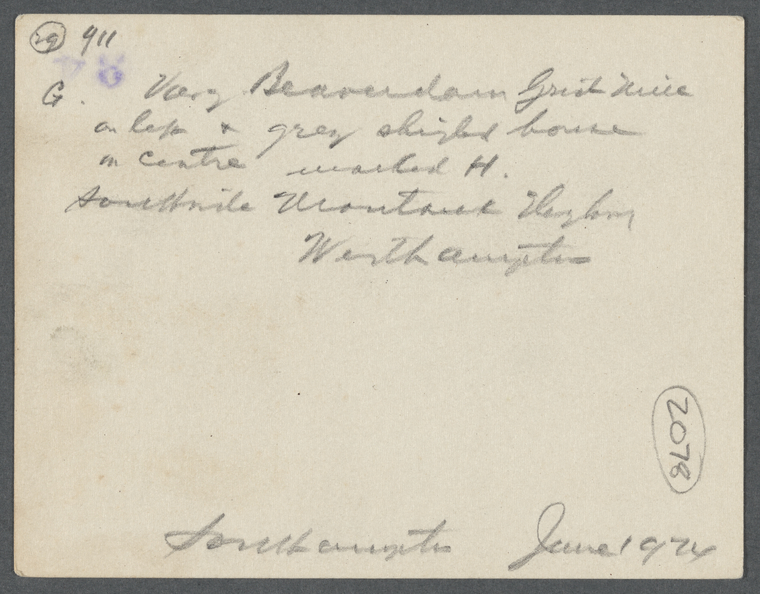 29 911
G. Beaverdam Grist Mill
on left & grey shingled house
in centre marked H.
Southside Montauk Highway
Westhampton
2078
Southampton June 1924